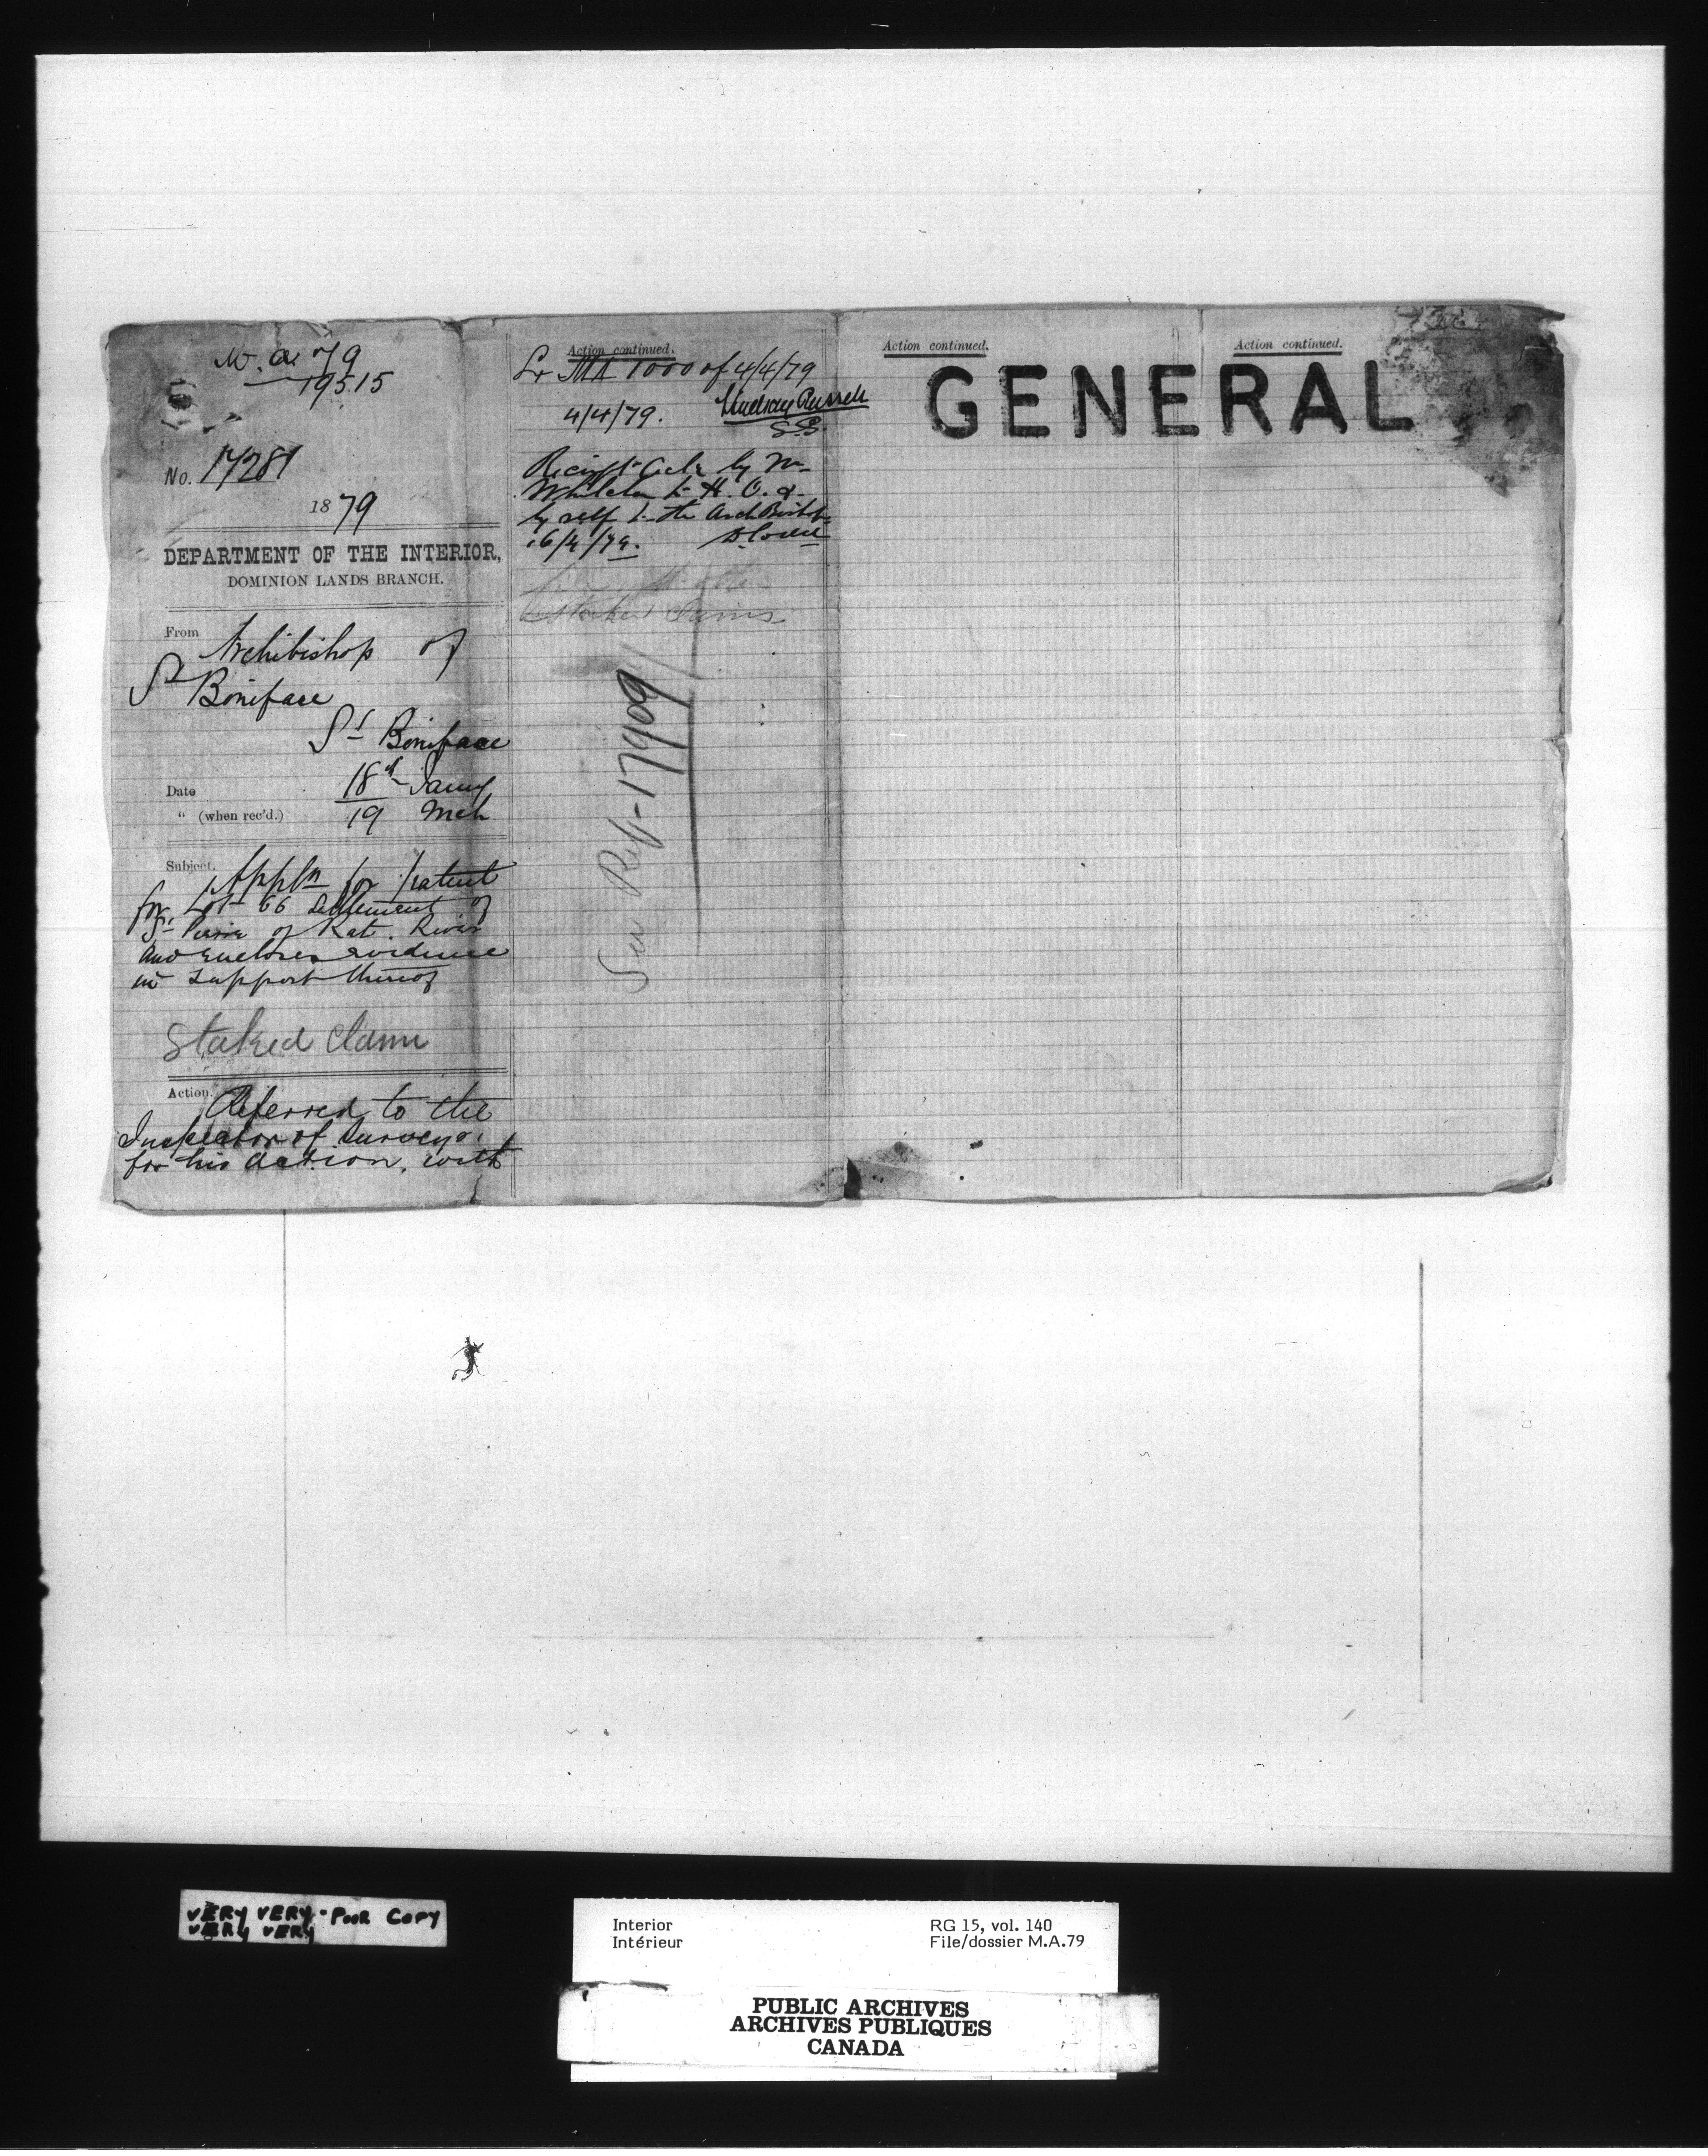 M. A. 79
19515
No. 17281
1879
DEPARTMENT OF THE INTERIOR,
DOMINION LANDS BRANCH.
From Archibishop of
St Boniface
St Boniface
Date 18th Jany
" (when rec'd.) 19 Mch
Subject. Appln for patent
for Lot 66 Settlement of
St Pierre of Rat River
and encloses evidence
in support thereof
Staked Claim
Action. Referred to the
Inspector of Surveys,
for his action, with
Action continued.
Lr MA 1000 of 4/4/79
4/4/79. Lindsay Russell
S.G.
Receipt Ackd by
to H. O. &
by self to the ArchBishop
16/4/79.
Staked Claims
See Ref-17909
Action continued.
Action continued.
GENERAL
VERY VERY - POOR COPY
VERY VERY
Interior
Intérieur
RG 15, vol. 140
File/dossier M.A.79
PUBLIC ARCHIVES
ARCHIVES PUBLIQUES
CANADA